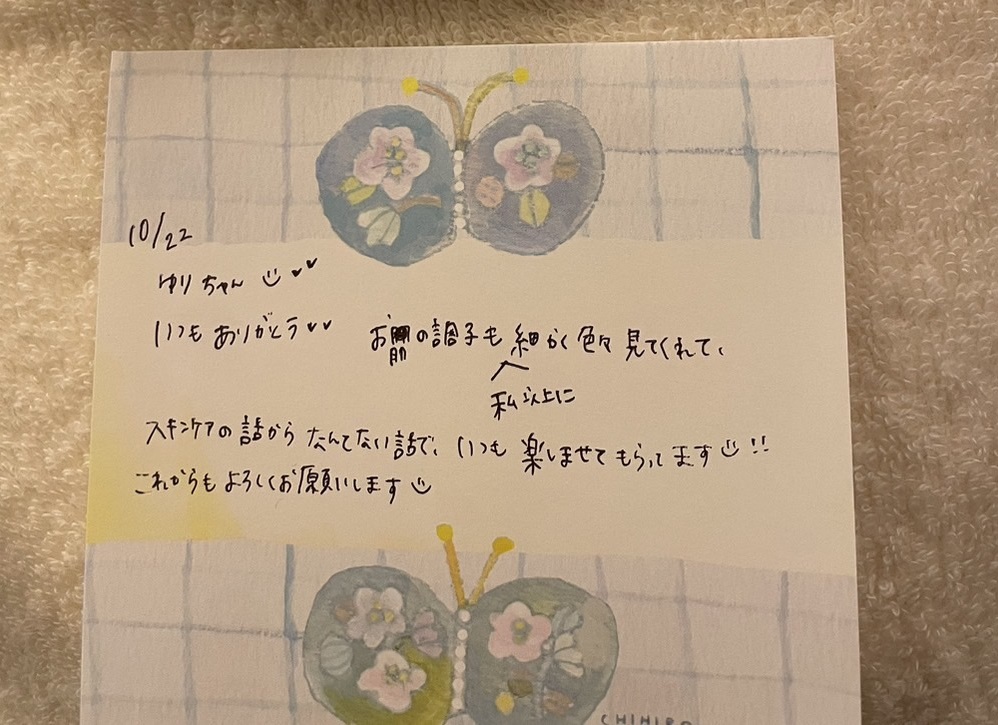 10/22
ゆりちゃん
いつもありがとう お肌の調子も細かく色々見てくれて、
私以上に
スキンケアの話からなんてない話で、いつも楽しませてもらってます!!
これからもよろしくお願いします
CHIHIRO